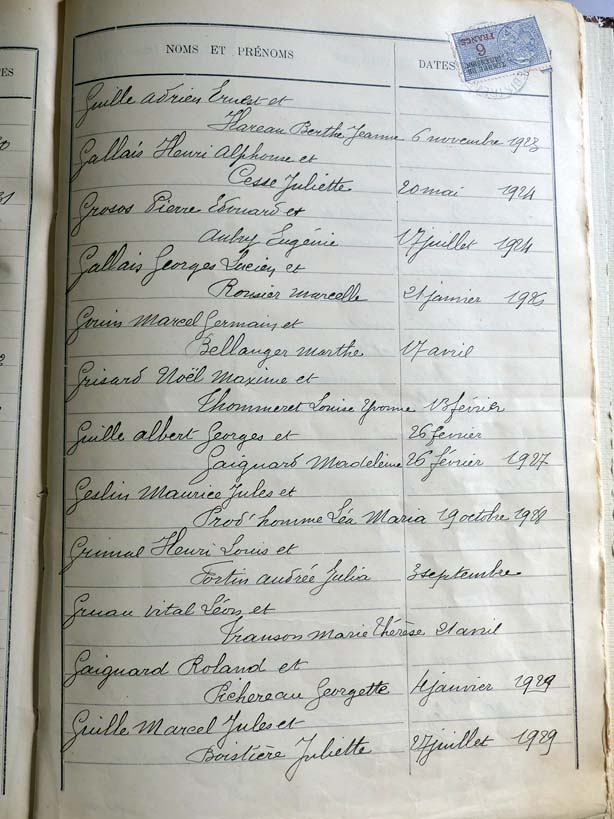 NOMS ET PRÉNOMS DATES
6 FRANCS
Guille Adrien Ernest et
Hareau Berthe Jeanne 6 novembre 1923
Gallais Henri Alphonse et
Cesse Juliette 20 mai 1924
Grosos Pierre Edouard et
Aubry Eugénie 17 juillet 1924
Gallais Georges Lucien et
Rousier Marcelle 21 janvier
Gouin Marcel Germain et
Bellanger Marthe 17 avril
Grisard Noël Maxime et
Thommeret Louise Yvonne 13 février
Guille Albert Georges et 26 fevrier
Gaignard Madeleine 26 février 1927
Geslin Maurice Jules et
Prod'homme Léa Maria 19 octobre 1928
Grimal Henri Louis et
Fortin Andrée Julia 3 septembre
Gruau Vital Léon et
Transon Marie Thérèse 21 avril
Gaignard Roland et
Pichereau Georgette 4 janvier 1929
Guille Marcel Jules et
Boistière Juliette 27 juillet 1929